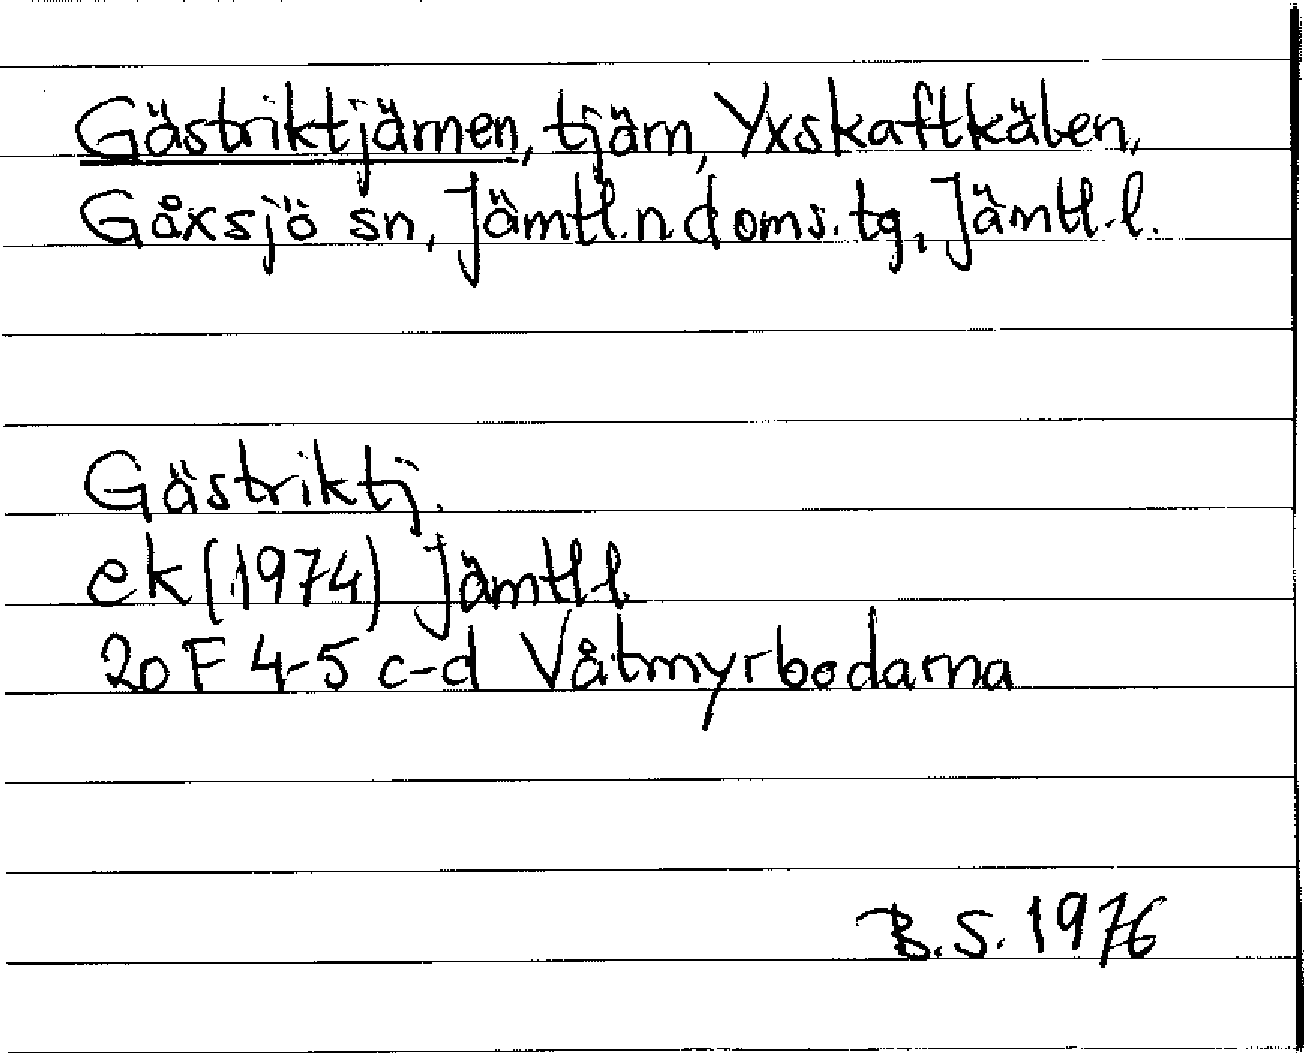 Gästriktjärnen, tjärn, Yxskaftkälen,
Gåxsjö sn, Jämtl.n doms.tg, Jämtl.l.
Gästriktj.
ek (1974) Jämtl l
20 F 4-5 c-d Våtmyrbodarna
B.S. 1976